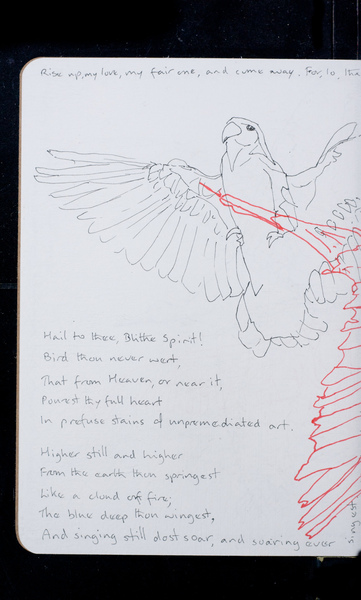 Rise up, my love, my fair one, and come away. For, lo, the
Hail to thee, Blithe Spirit!
Bird thou never wert,
That from Heaven, or near it,
Pourest thy full heart
In profuse stains of unpremediated art.
Higher still and higher
From the earth thou springest
Like a cloud of fire;
The blue deep thou wingest,
And singing still dost soar, and soaring ever
singest